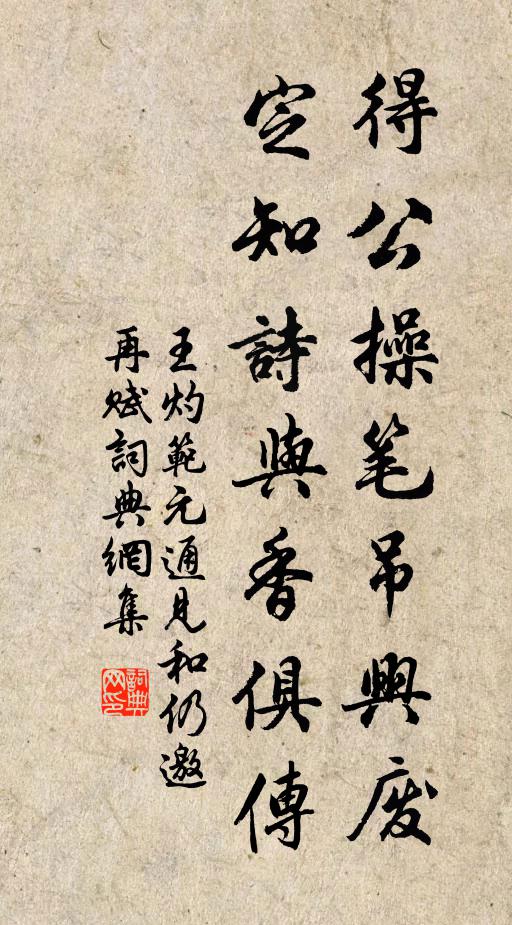 得公操笔吊興废
定知詩與香俱傳
王灼範元通見和仍邀
再赋詞典網集
詞典网印